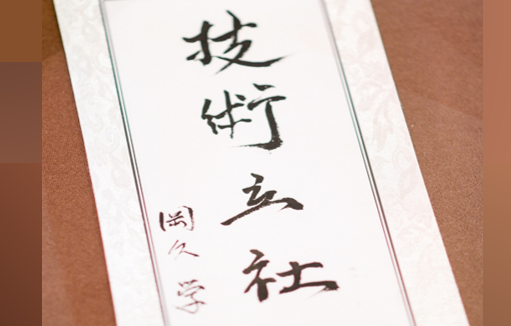 技術立社
岡久学